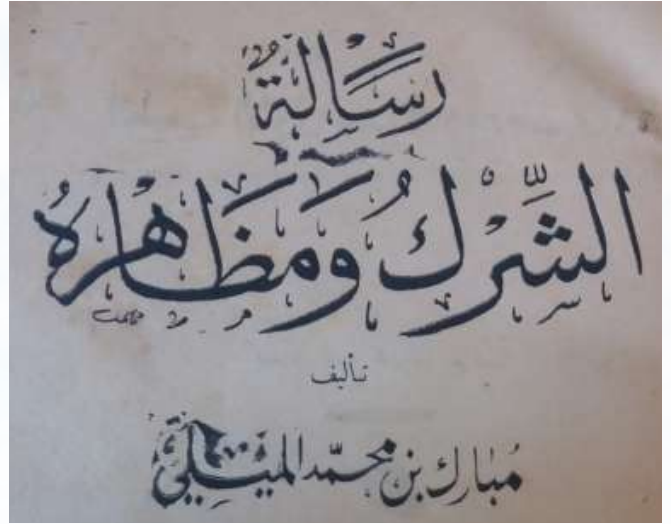 رِسَالَةُ
الشِّرْكُ وَمَظَاهِرُهُ
تأليف
مُبارك بن محمّد الميلي